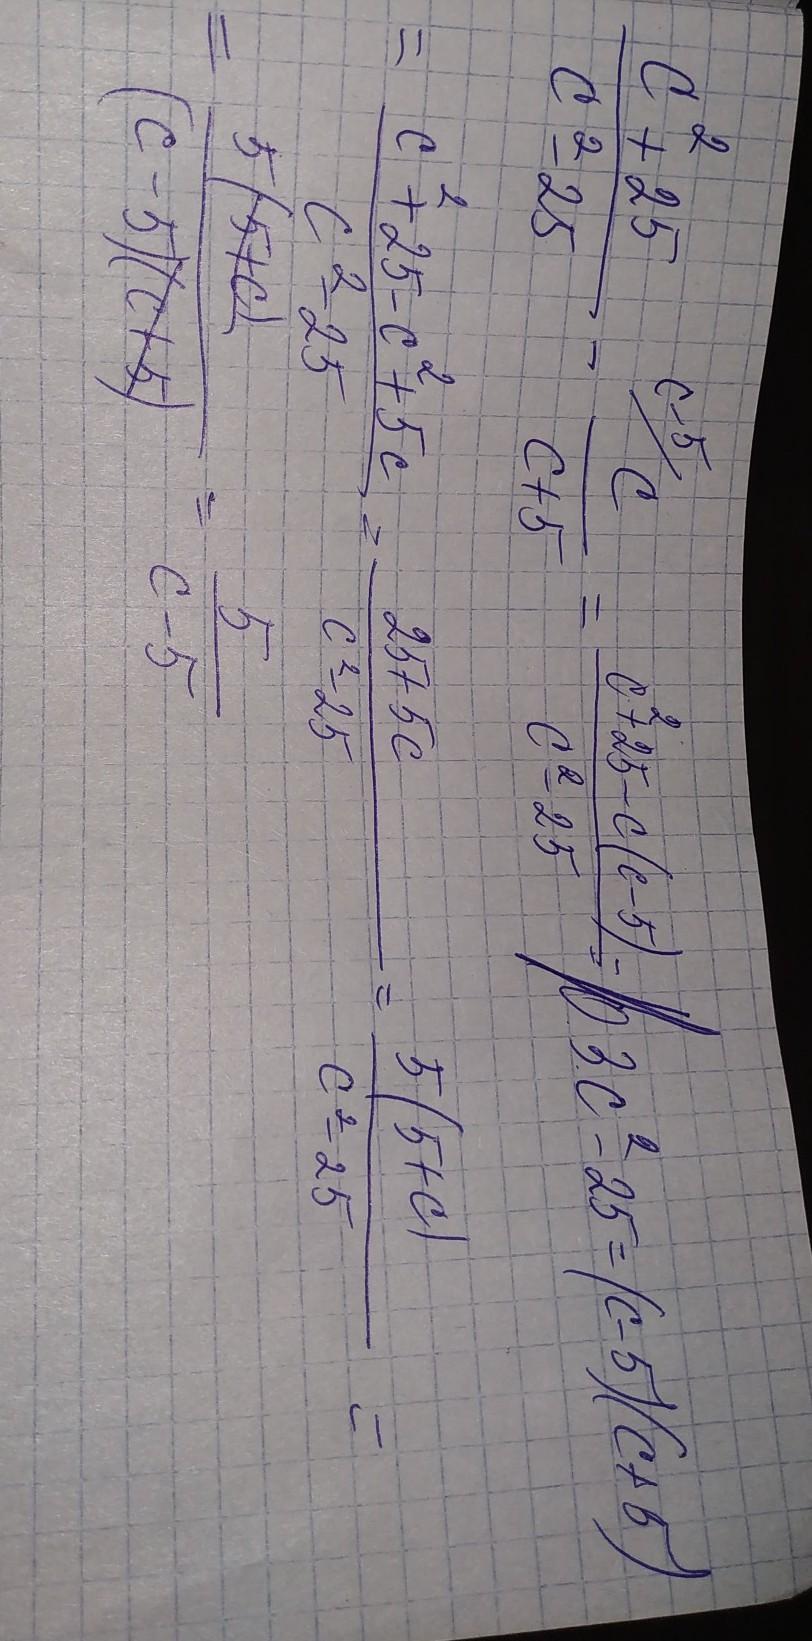 (c² + 25)/(c² - 25) - c/(c + 5) (c - 5 = (c² + 25 - c(c - 5))/(c² - 25) = // О.З. c² - 25 = (c - 5)(c + 5)
= (c² + 25 - c² + 5c)/(c² - 25) = (25 + 5c)/(c² - 25) = 5(5 + c)/(c² - 25) =
= 5(5 + c)/((c - 5)(c + 5)) = 5/(c - 5)